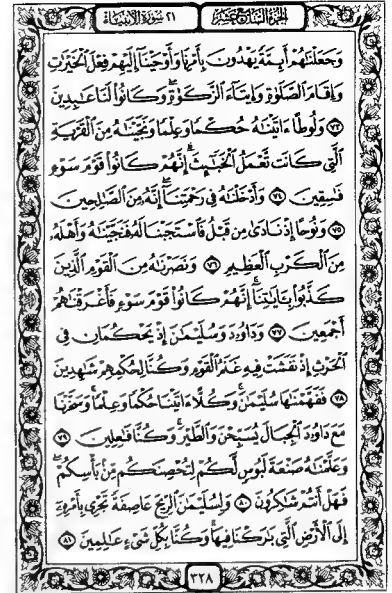 الجزء السابع عشر
٢١ سورة الأنبياء
وَجَعَلْنَٰهُمْ أَئِمَّةً يَهْدُونَ بِأَمْرِنَا وَأَوْحَيْنَآ إِلَيْهِمْ فِعْلَ ٱلْخَيْرَٰتِ
وَإِقَامَ ٱلصَّلَوٰةِ وَإِيتَآءَ ٱلزَّكَوٰةِ ۖ وَكَانُوا۟ لَنَا عَٰبِدِينَ
﴿٧٣﴾ وَلُوطًا ءَاتَيْنَٰهُ حُكْمًا وَعِلْمًا وَنَجَّيْنَٰهُ مِنَ ٱلْقَرْيَةِ
ٱلَّتِى كَانَت تَّعْمَلُ ٱلْخَبَٰٓئِثَ ۗ إِنَّهُمْ كَانُوا۟ قَوْمَ سَوْءٍ
فَٰسِقِينَ ﴿٧٤﴾ وَأَدْخَلْنَٰهُ فِى رَحْمَتِنَآ ۖ إِنَّهُۥ مِنَ ٱلصَّٰلِحِينَ
﴿٧٥﴾ وَنُوحًا إِذْ نَادَىٰ مِن قَبْلُ فَٱسْتَجَبْنَا لَهُۥ فَنَجَّيْنَٰهُ وَأَهْلَهُۥ
مِنَ ٱلْكَرْبِ ٱلْعَظِيمِ ﴿٧٦﴾ وَنَصَرْنَٰهُ مِنَ ٱلْقَوْمِ ٱلَّذِينَ
كَذَّبُوا۟ بِـَٔايَٰتِنَآ ۚ إِنَّهُمْ كَانُوا۟ قَوْمَ سَوْءٍ فَأَغْرَقْنَٰهُمْ
أَجْمَعِينَ ﴿٧٧﴾ وَدَاوُۥدَ وَسُلَيْمَٰنَ إِذْ يَحْكُمَانِ فِى
ٱلْحَرْثِ إِذْ نَفَشَتْ فِيهِ غَنَمُ ٱلْقَوْمِ وَكُنَّا لِحُكْمِهِمْ شَٰهِدِينَ
﴿٧٨﴾ فَفَهَّمْنَٰهَا سُلَيْمَٰنَ ۚ وَكُلًّا ءَاتَيْنَا حُكْمًا وَعِلْمًا ۚ وَسَخَّرْنَا
مَعَ دَاوُۥدَ ٱلْجِبَالَ يُسَبِّحْنَ وَٱلطَّيْرَ ۚ وَكُنَّا فَٰعِلِينَ ﴿٧٩﴾
وَعَلَّمْنَٰهُ صَنْعَةَ لَبُوسٍ لَّكُمْ لِتُحْصِنَكُم مِّنۢ بَأْسِكُمْ ۖ
فَهَلْ أَنتُمْ شَٰكِرُونَ ﴿٨٠﴾ وَلِسُلَيْمَٰنَ ٱلرِّيحَ عَاصِفَةً تَجْرِى بِأَمْرِهِۦٓ
إِلَى ٱلْأَرْضِ ٱلَّتِى بَٰرَكْنَا فِيهَا ۚ وَكُنَّا بِكُلِّ شَىْءٍ عَٰلِمِينَ ﴿٨١﴾
٣٢٨